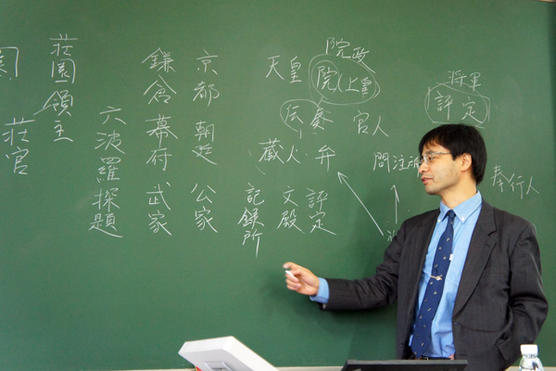 奉行人
将軍
評定
問注所
院政
院(上皇)
天皇
伝奏
官人
蔵人・弁
評定
文殿
記録所
京都 朝廷 公家
鎌倉幕府 武家
六波羅探題
荘園領主
荘官